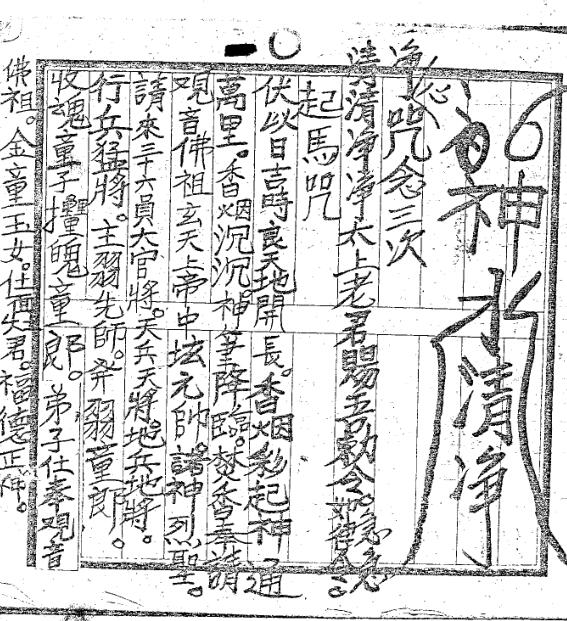 神水清净
净心咒念三次
清清净净太上老君賜吾勅令急急
起馬咒
伏以日吉時良天地開長。香烟彩起神通
萬里。香烟沉沉神筆降臨。焚香奉請
观音佛祖玄天上帝中坛元帥。諸神烈聖。
請來三十六員大官將。天兵天將地兵地將。
行兵猛將。主羽先師。羽童郎。
收魂童子魄童郎。弟子仕奉观音
佛祖。金童玉女。仕面火君。福德正神。